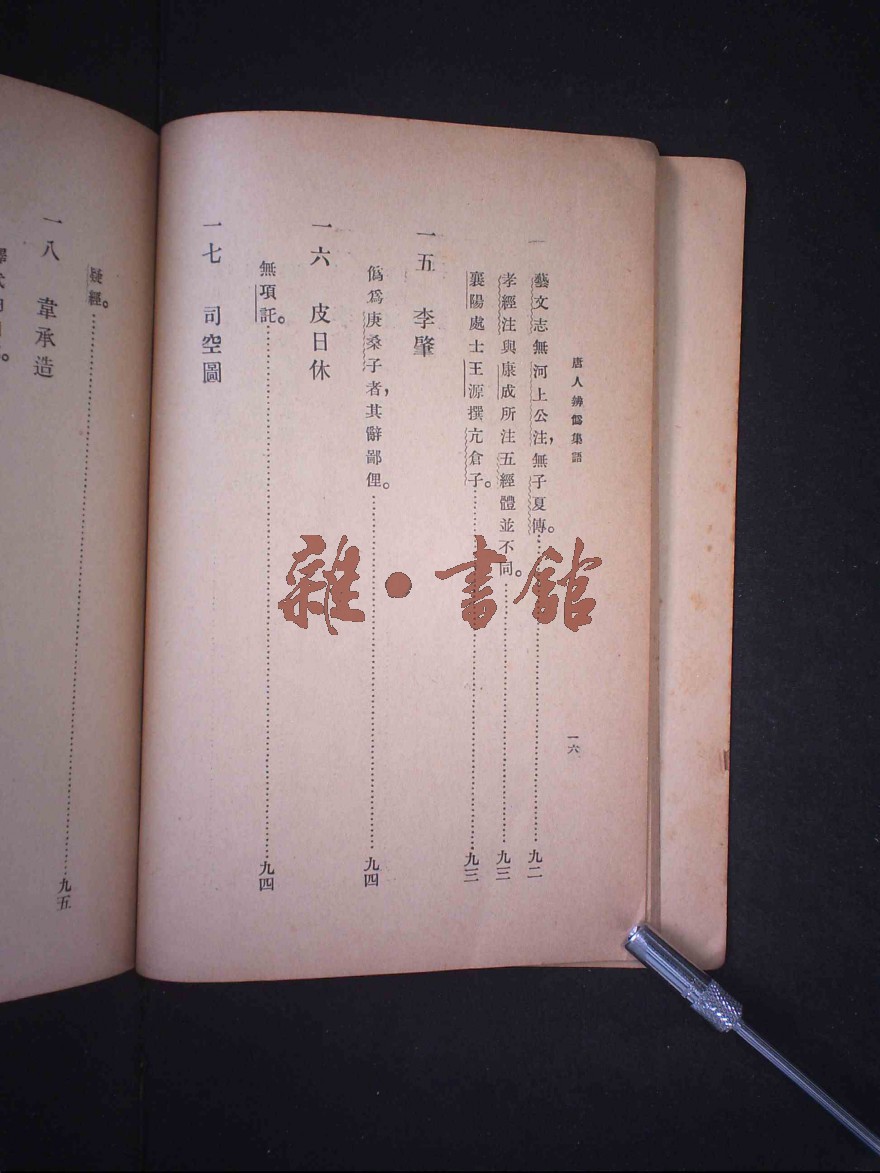 唐人辨僞集語
一六
藝文志無河上公注，無子夏傳。……九二
孝經注與康成所注五經體並不同。……九三
襄陽處士王源撰亢倉子。……九三
一五 李肇
僞爲庚桑子者，其辭鄙俚。……九四
一六 皮日休
無項託。……九四
一七 司空圖
疑經。……九五
一八 韋承造
雜·書館